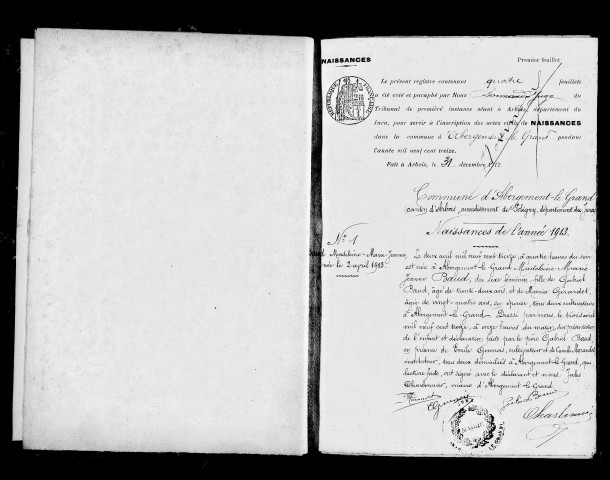 NAISSANCES
Premier feuillet
Le présent registre contenant quatre feuillets
a été coté et paraphé par Nous Juge du
Tribunal de première instance séant à Arbois, département du
Jura, pour servir à l'inscription des actes civils de NAISSANCES
dans la commune d'Abergement-le-Grand pendant
l'année mil neuf cent treize.
Fait à Arbois, le 31 décembre 1912
RÉPUBLIQUE FRANÇAISE
Commune d'Abergement-le-Grand
canton d'Arbois, arrondissement de Poligny, département du Jura
Naissances de l'année 1913.
N° 1
Madeleine-Marie-Jeanne
née le 2 avril 1913.
Le deux avril mil neuf cent treize, à quatre heures du soir
est née à Abergement-le-Grand Madeleine-Marie
Jeanne Baud, du sexe féminin, fille de Gabriel
Baud, âgé de vingt-deux ans, et de Maria Girardet,
âgée de vingt-quatre ans, son épouse, tous deux cultivateurs
à Abergement-le-Grand. Dressé par nous, le trois avril
mil neuf cent treize, à onze heures du matin, sur présentation
de l'enfant et déclaration faite par le père Gabriel Baud,
en présence de Emile et de Camille
instituteur, tous deux domiciliés à Abergement-le-Grand, qui,
lecture faite, ont signé avec le déclarant et nous, Jules
Charbonnier, maire d'Abergement-le-Grand.
Charbonnier
MAIRIE